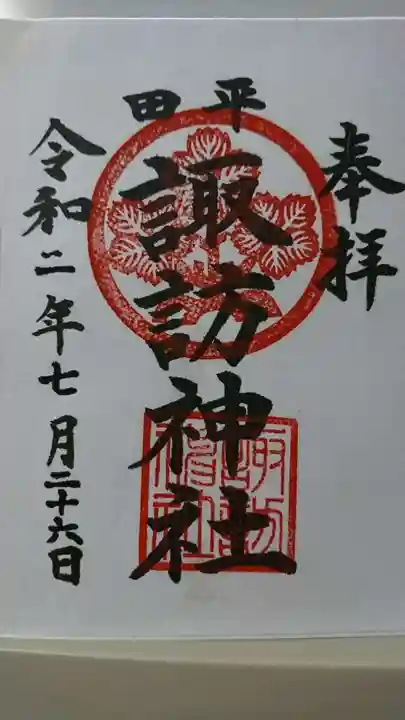 奉拝
平田
諏訪神社
令和二年七月二十六日
諏訪
神社